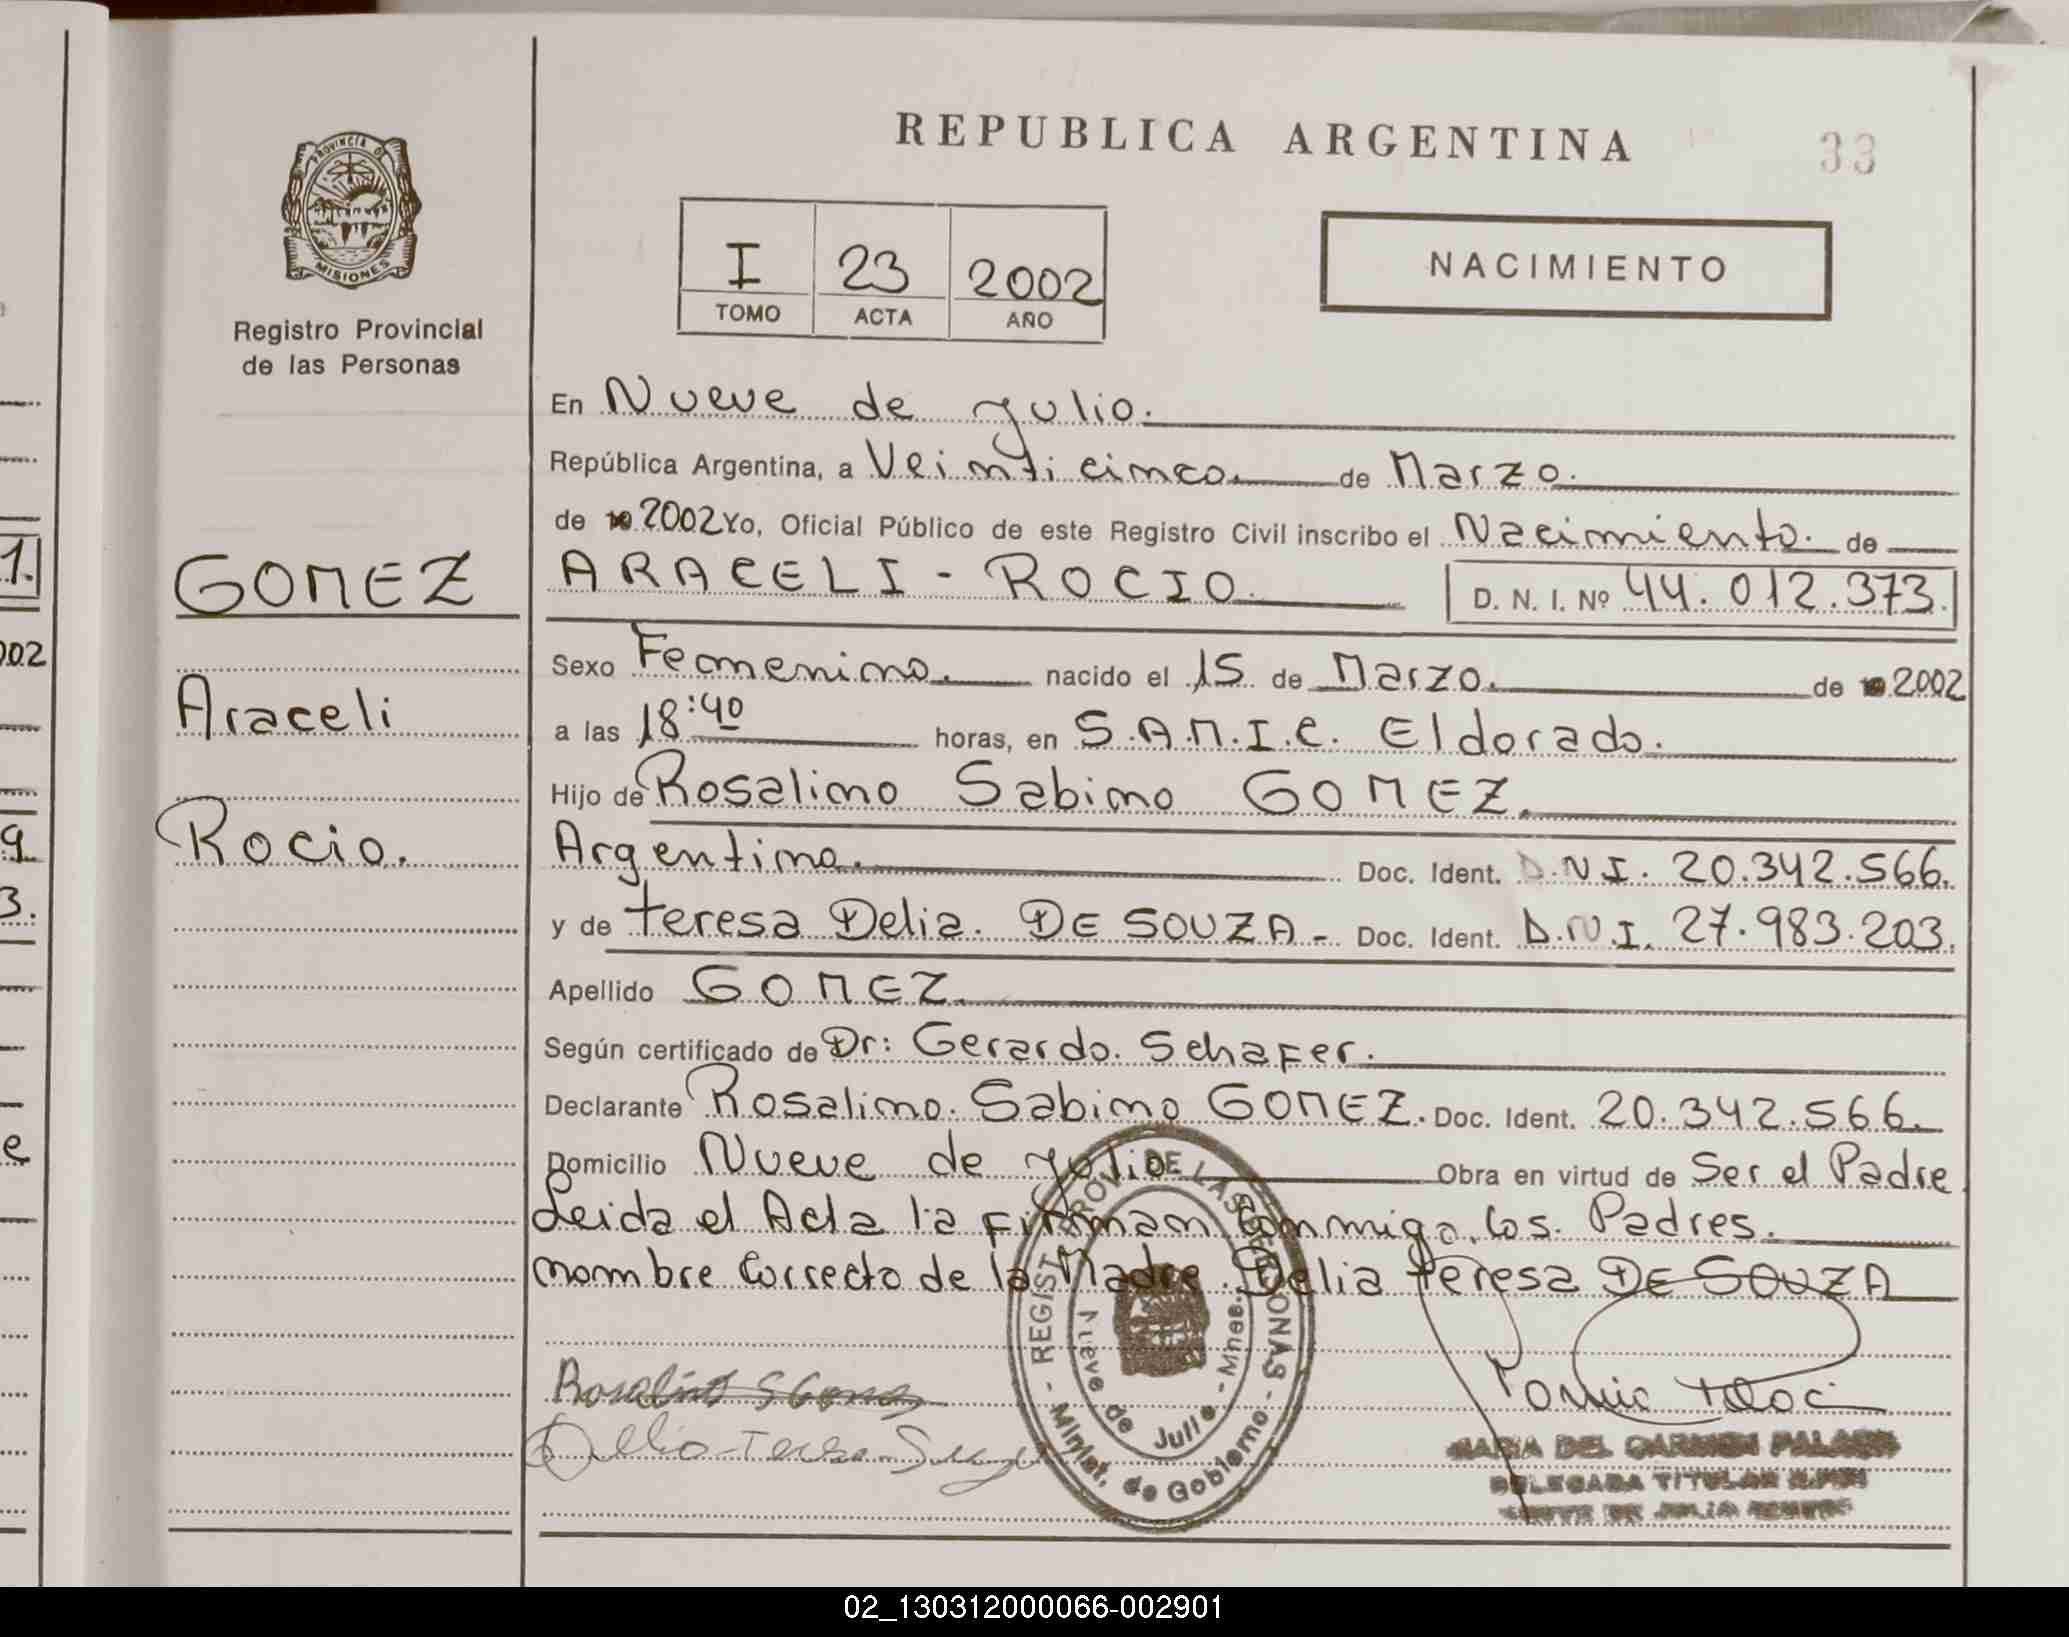 REPUBLICA ARGENTINA
33
PROVINCIA DE
MISIONES
Registro Provincial
de las Personas
I 23 2002
TOMO ACTA AÑO
NACIMIENTO
En Nueve de Julio.
República Argentina, a Veinticinco. de Marzo.
de 2002 Yo, Oficial Público de este Registro Civil inscribo el Nacimiento. de
GOMEZ
ARACELI - ROCIO. D. N. I. Nº 44.012.373.
Sexo Femenino. nacido el 15 de Marzo. de 2002
Araceli
a las 18:40 horas, en S.A.M.I.C. Eldorado.
Hijo de Rosalino Sabino GOMEZ.
Rocio.
Argentino. Doc. Ident. D.N.I. 20.342.566.
y de teresa Delia. DE SOUZA - Doc. Ident. D.N.I. 27.983.203.
Apellido GOMEZ.
Según certificado de Dr: Gerardo. Schafer.
Declarante Rosalino. Sabino GOMEZ. Doc. Ident. 20.342.566.
Domicilio Nueve de Julio Obra en virtud de Ser el Padre
Leida el Acta la Firman Conmigo. los. Padres.
nombre Correcto de la Madre. Delia teresa DE SOUZA
REGIST. PROV. DE LAS PERSONAS
Nueve de Julio - Mnes.
- Minist. de Gobierno -
Rosalino S Gomez
Delia Teresa
MARIA DEL CARMEN
DELEGADA TITULAR
1.
002
9
3.
e
02_130312000066-002901